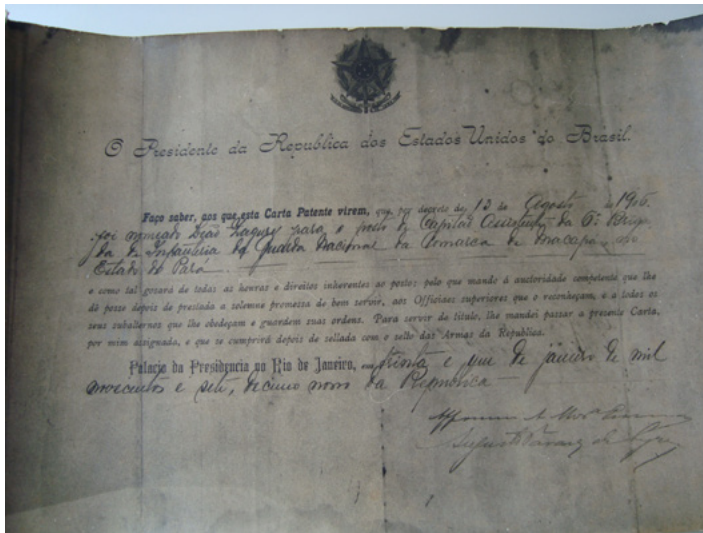 O Presidente da Republica dos Estados Unidos do Brasil.
Faço saber, aos que esta Carta Patente virem, que, por decreto de 13 de Agosto de 1906.
foi nomeado Dias para o posto de Capitão Assistente da 6ª Briga
da de Infanteria da Guarda Nacional da Comarca de Macapá, no
Estado do Pará
e como tal gozará de todas as honras e direitos inherentes ao posto; pelo que mando á auctoridade competente que lhe
dê posse depois de prestada a solemne promessa de bem servir, aos Officiaes superiores que o reconheçam, e a todos os
seus subalternos que lhe obedeçam e guardem suas ordens. Para servir de titulo, lhe mandei passar a presente Carta,
por mim assignada, e que se cumprirá depois de sellada com o sello das Armas da Republica.
Palacio da Presidencia no Rio de Janeiro, em trinta e um de janeiro de mil
novecentos e sete, decimo nono da Republica
Affonso A
Augusto Tavares de Lyra